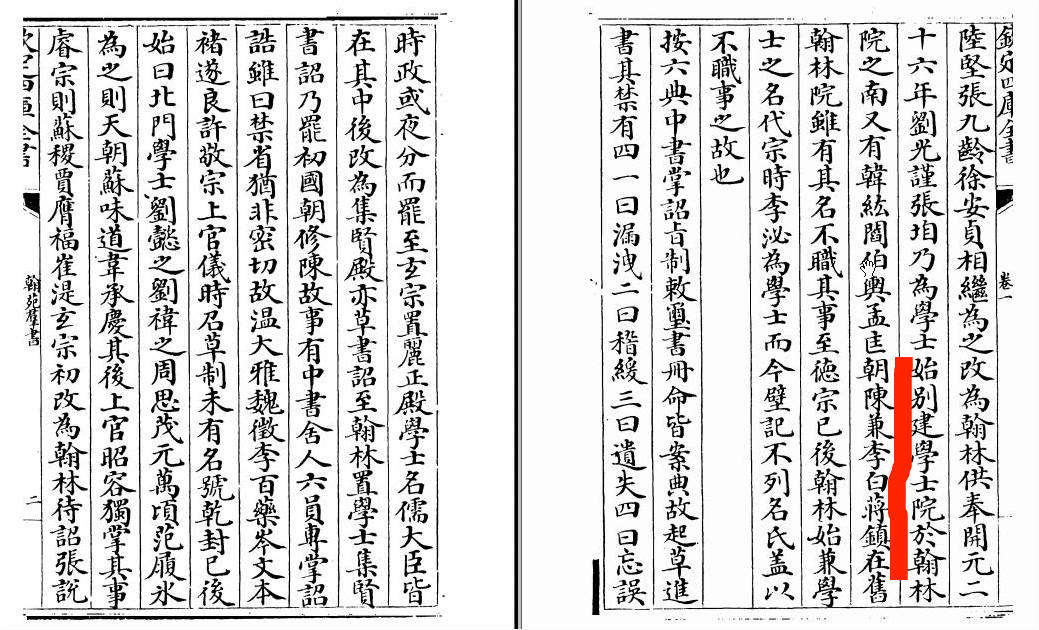 時政或夜分而罷至玄宗置麗正殿學士名儒大臣皆
在其中後改為集賢殿亦草書詔至翰林置學士集賢
書詔乃罷初國朝修陳故事有中書舍人六員專掌詔
誥雖曰禁省猶非密切故温大雅魏徵李百藥岑文本
褚遂良許敬宗上官儀時召草制未有名號乾封已後
始曰北門學士劉懿之劉禕之周思茂元萬頃范履氷
為之則天朝蘇味道韋承慶其後上官昭容獨掌其事
睿宗則蘇稷賈膺福崔湜玄宗初改為翰林待詔張說
欽定四庫全書
翰苑羣書
二
欽定四庫全書
卷一
陸堅張九齡徐安貞相繼為之改為翰林供奉開元二
十六年劉光謹張垍乃為學士始别建學士院於翰林
院之南又有韓紘閻伯輿孟匡朝陳兼李白蔣鎮在舊
翰林院雖有其名不職其事至徳宗已後翰林始兼學
士之名代宗時李泌為學士而今壁記不列名氏葢以
不職事之故也
按六典中書掌詔㫖制敕璽書册命皆案典故起草進
書其禁有四一曰漏洩二曰稽緩三曰遺失四曰忘誤